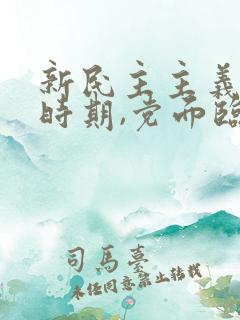 新民主主義
時期,党面臨
司馬臺
未经同意禁止转载